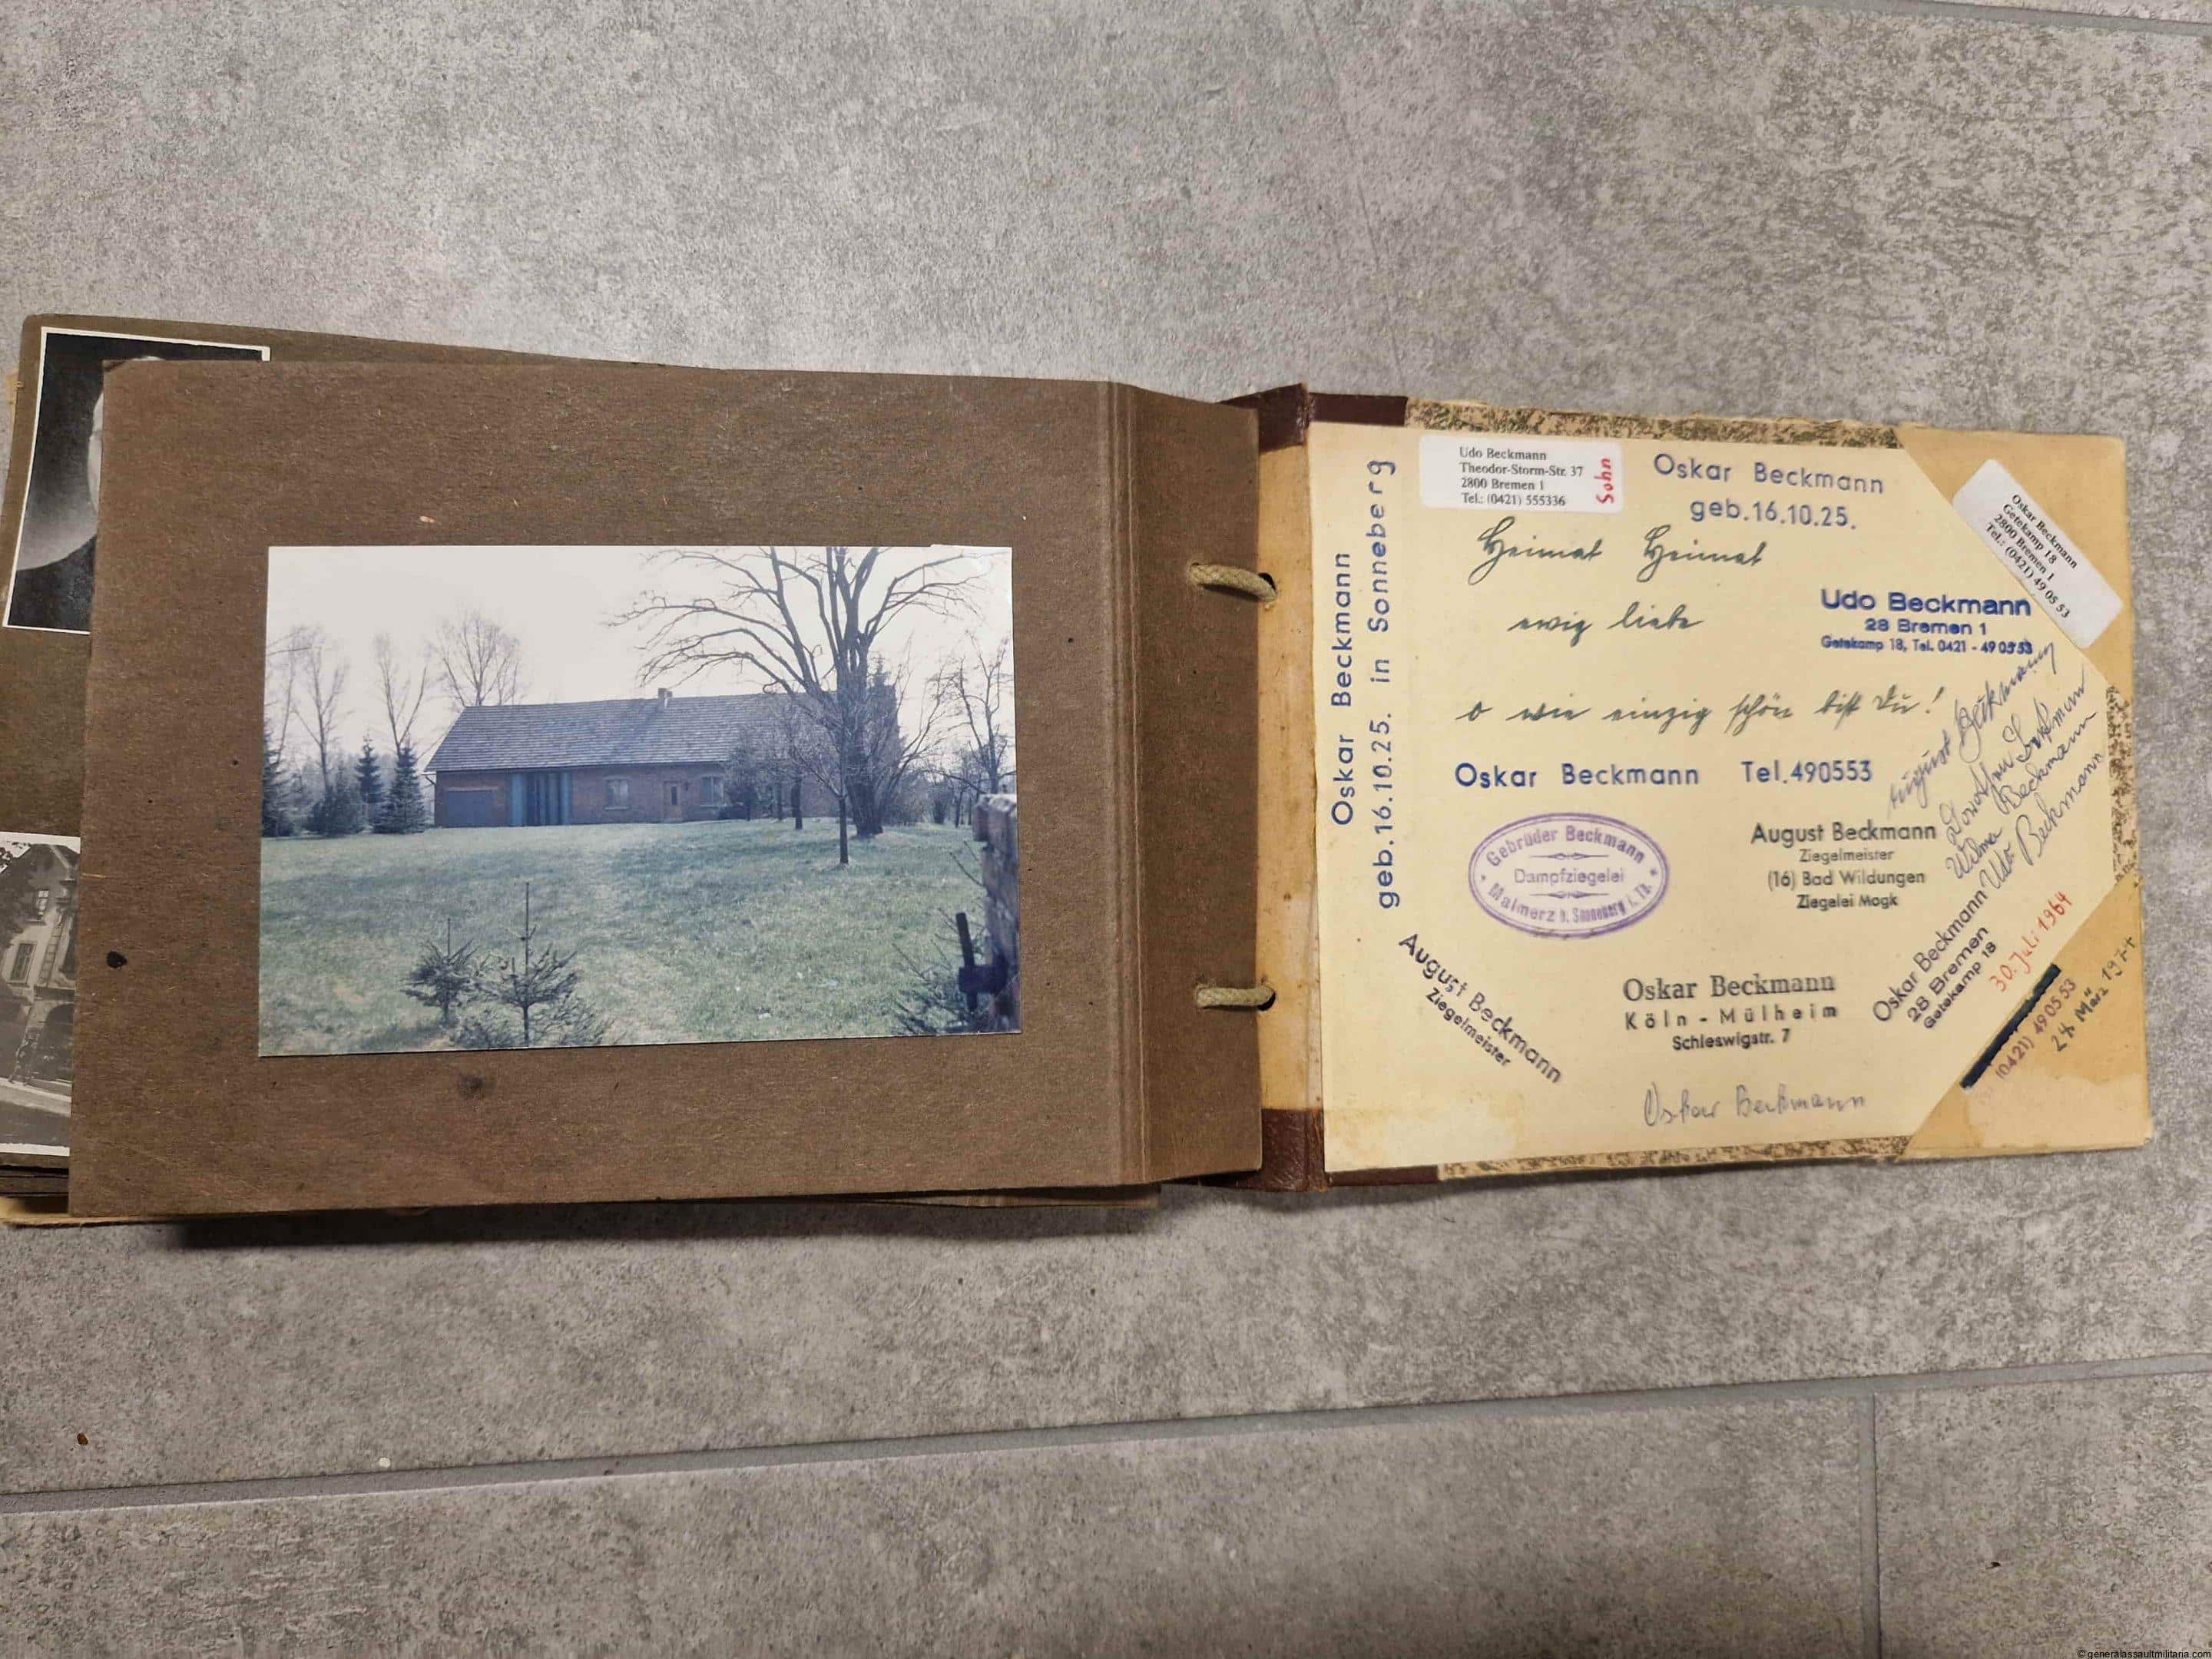 Oskar Beckmann
geb.16.10.25. in Sonneberg
Udo Beckmann
Theodor-Storm-Str. 37
2800 Bremen 1
Tel.: (0421) 555336
Sohn
Oskar Beckmann
geb.16.10.25.
Oskar Beckmann
Getekamp 18
2800 Bremen 1
Tel.: (0421) 49 05 53
Heimat Heimat
ewig liebe
o wie einzig schön bist Du!
Udo Beckmann
28 Bremen 1
Getekamp 18, Tel. 0421 - 49 05 53
August Beckmann
Wilma Beckmann
Udo Beckmann
Oskar Beckmann Tel.490553
Gebrüder Beckmann
Dampfziegelei
Malmerz b. Sonneberg i. Th.
August Beckmann
Ziegelmeister
(16) Bad Wildungen
Ziegelei Mogk
August Beckmann
Ziegelmeister
Oskar Beckmann
Köln - Mülheim
Schleswigstr. 7
Oskar Beckmann
28 Bremen
Getekamp 18
30. Juli 1964
(0421) 49 05 53
März
Oskar Beckmann
©generalassaultmilitaria.com